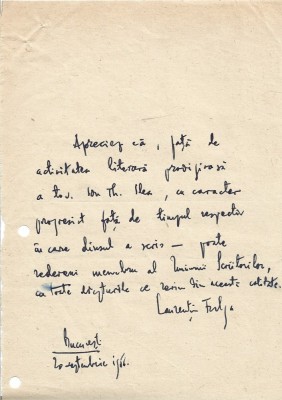 Apreciez că, față de
activitatea literară prodigioasă
a tov. Ion Th. Ilea, cu caracter
progresist față de timpul respectiv
în care dînsul a scris — poate
redeveni membru al Uniunii Scriitorilor,
cu toate drepturile ce decurg din această calitate.
Laurențiu Fulga
București
20 septembrie 1966.